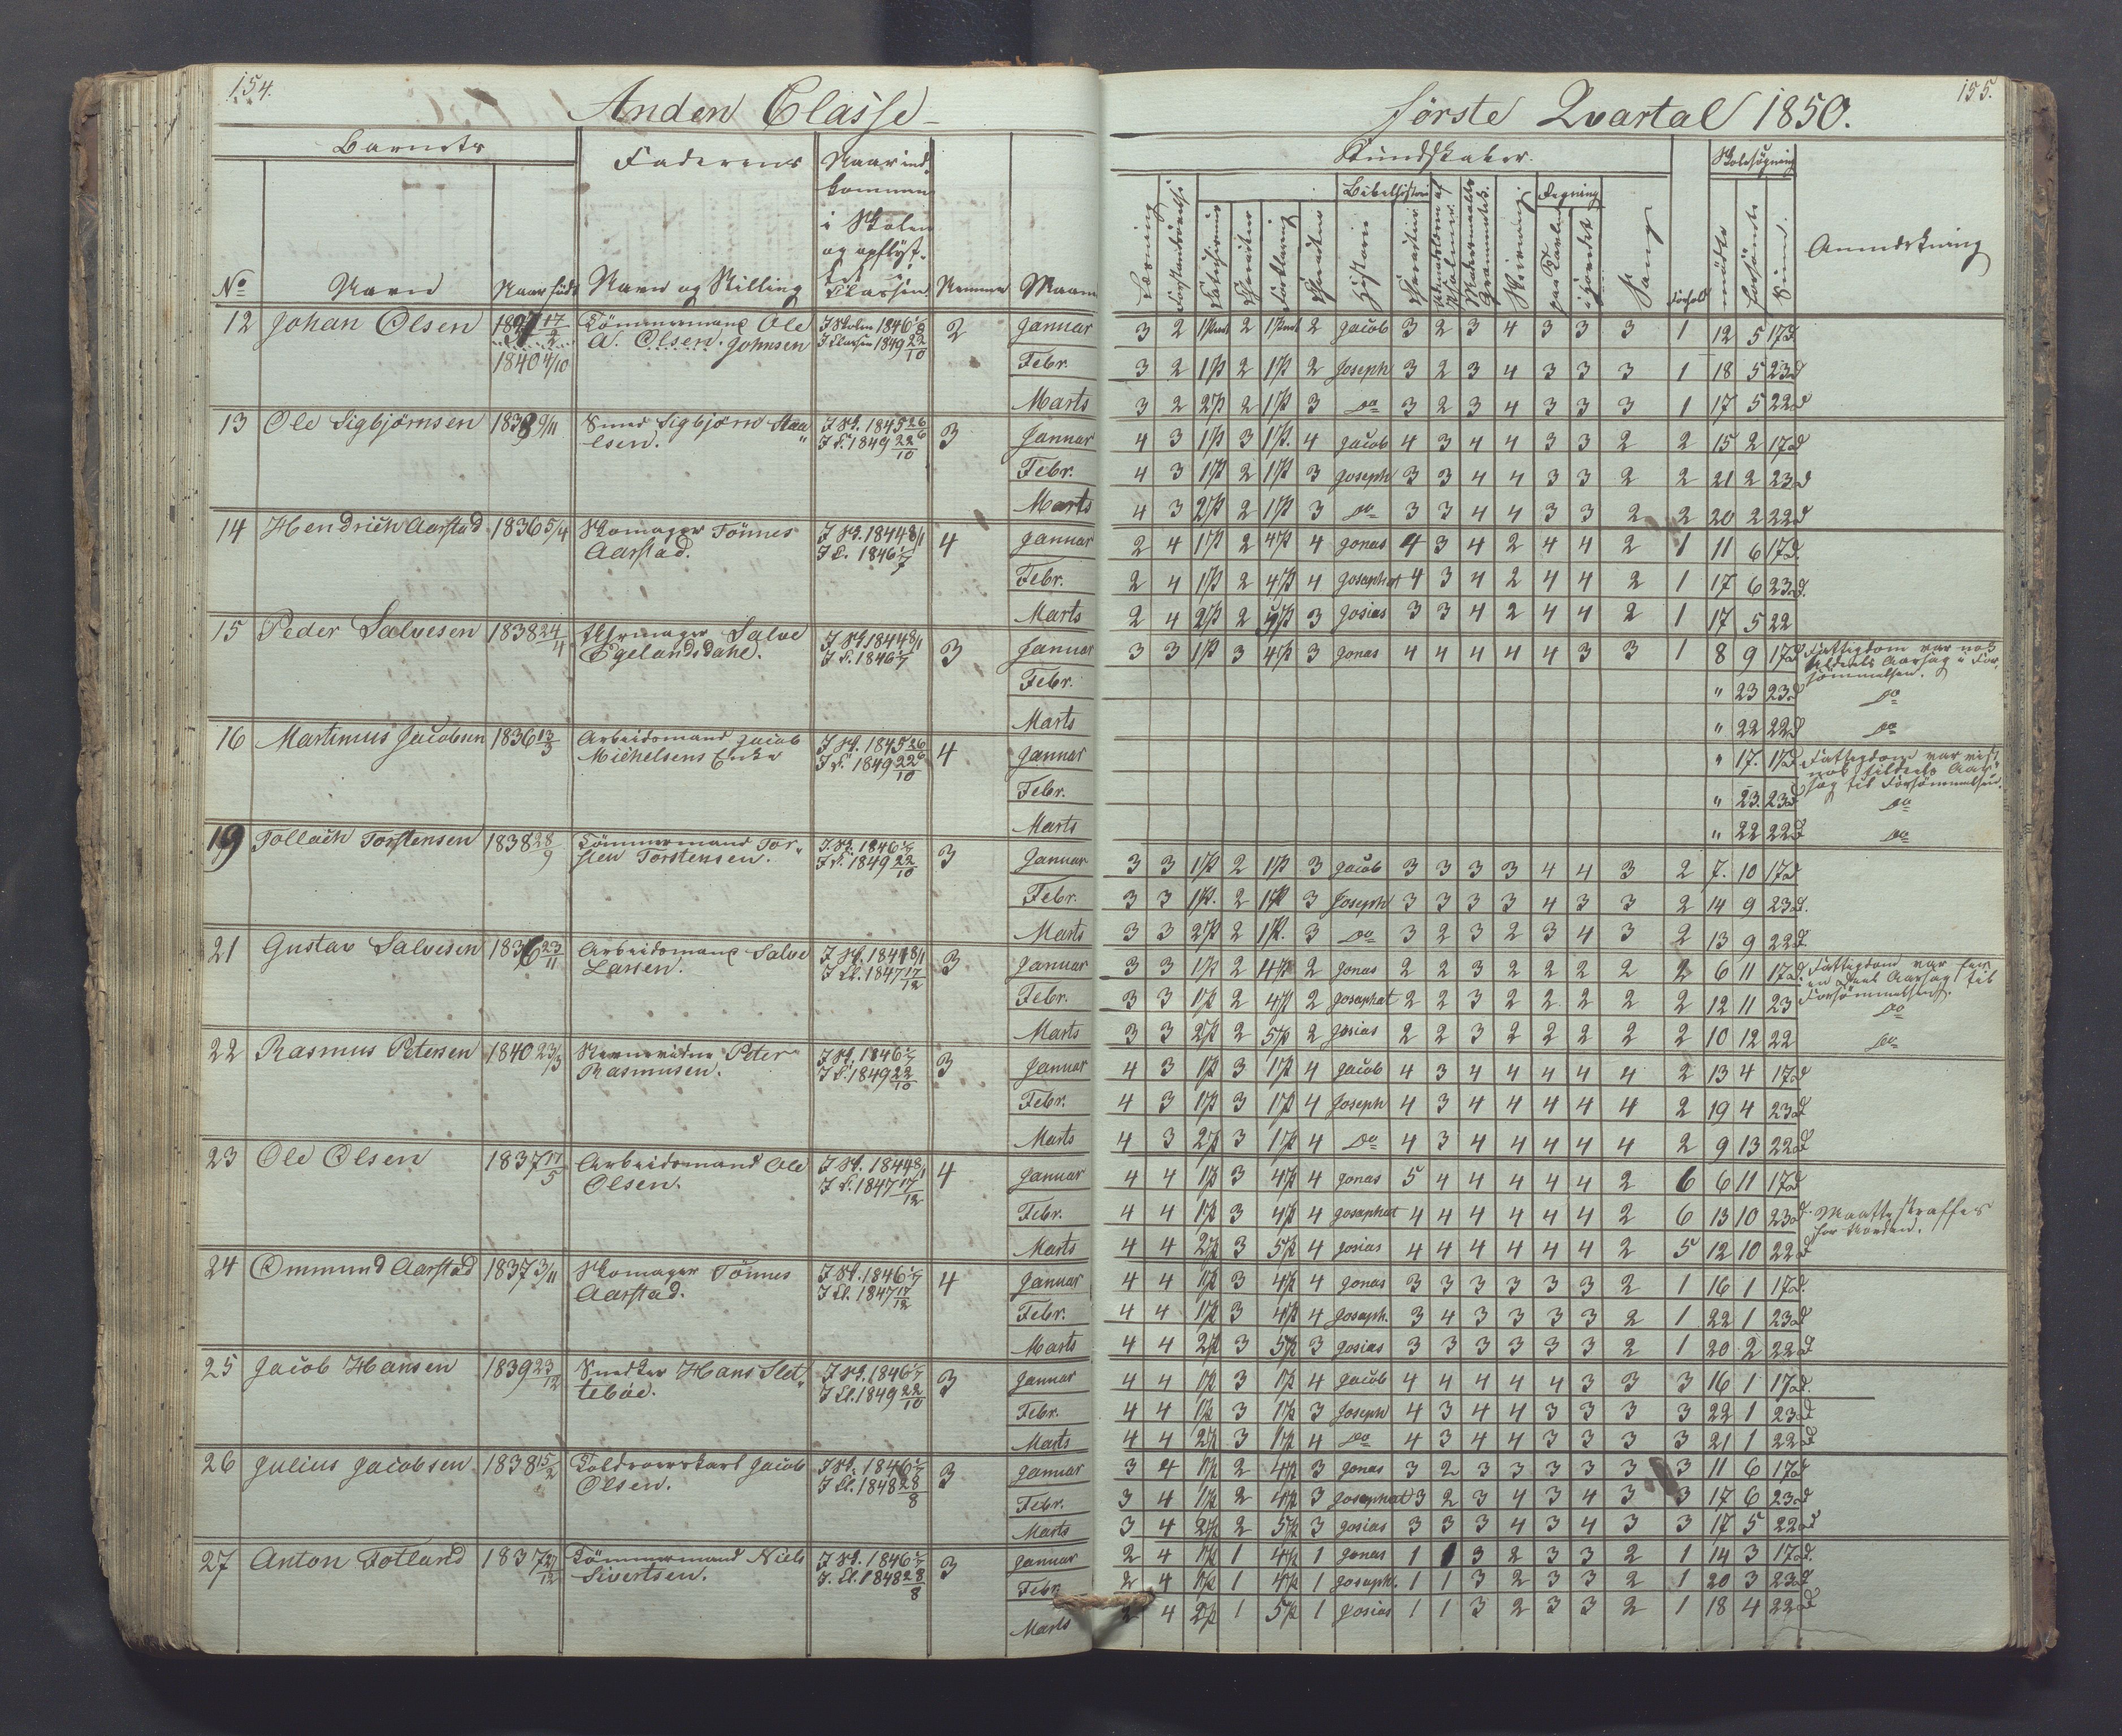 154.
Anden Classe
Barnets
Faderens
Naar ind-
kommen
i Skolen
og opflyt-
tet i
Classen
No
Navn
Naar født
Navn og Stilling
Nemme
Maaned
12 Johan Olsen 1837 17/2 Tømmermand Ole I Skolen 1846 2 Januar
1840 4/10 A. Olsen. Johnsen I Classen 1849 22/10
Febr.
Marts
13 Ole Sigbjørnsen 1838 9/11 Smed Sigbjørn Staa- I Sk. 1845 26/6 3 Januar
lesen. I Cl. 1849 22/10
Febr.
Marts
14 Hendrich Aarstad 1836 5/4 Skomager Tönnes I Sk. 1844 8/1 4 Januar
Aarstad. I Cl. 1846 1/7
Febr.
Marts
15 Peder Salvesen 1838 24/4 Salve I Sk. 1844 8/1 3 Januar
Egelandsdahl. I Cl. 1846 1/7
Febr.
Marts
16 Martinus Jacobsen 1836 13/3 Arbeidsmand Jacob I Sk. 1845 26/6 4 Januar
Michelsens Enke I Cl. 1849 22/10
Febr.
Marts
19 Tollach Torstensen 1838 28/9 Tømmermand Tor- I Sk. 1846 1/7 3 Januar
sten Torstensen. I Cl. 1849 22/10
Febr.
Marts
21 Gustav Salvesen 1836 23/11 Arbeidsmand Salve I Sk. 1844 8/1 3 Januar
Larsen. I Cl. 1847 17/12
Febr.
Marts
22 Rasmus Petersen 1840 23/3 Peter I Sk. 1846 1/7 3 Januar
Rasmusen. I Cl. 1849 22/10
Febr.
Marts
23 Ole Olsen 1837 17/5 Arbeidsmand Ole I Sk. 1844 8/1 4 Januar
Olsen. I Cl. 1847 17/12
Febr.
Marts
24 Ommund Aarstad 1837 3/11 Skomager Tönnes I Sk. 1846 1/7 4 Januar
Aarstad. I Cl. 1847 17/12
Febr.
Marts
25 Jacob Hansen 1839 23/12 Snedker Hans Slet- I Sk. 1846 1/7 3 Januar
teböe. I Cl. 1849 22/10
Febr.
Marts
26 Julius Jacobsen 1838 15/2 Toldroerskarl Jacob I Sk. 1846 1/7 3 Januar
Olsen. I Cl. 1848 28/8
Febr.
Marts
27 Anton Fotland 1837 27/12 Tømmermand Niels I Sk. 1846 1/7 3 Januar
Sivertsen. I Cl. 1848 28/8
Febr.
Marts
155.
Første Qvartal 1850.
Kundskaber.
Skolesøgning
Bibelhistorie
Regning
Læsning
Forstandsøvelse
Forklaring
Historie
Modersmaalets
Grammatik.
Skrivning
paa Tavlen
i Hovedet
Sang
Forhold
mødte
forsømte
Anmærkning
3 2 1 Part 2 1 Part 2 Jacob 3 2 3 4 3 3 3 1 12 5 17 d
3 2 1 P 2 1 P 2 Joseph 3 2 3 4 3 3 3 1 18 5 23 d
3 2 2 P 2 1 P 3 Do 3 2 3 4 3 3 3 1 17 5 22 d
4 3 1 P 3 1 P. 4 Jacob 4 3 4 4 3 3 2 2 15 2 17 d
4 3 1 P 2 1 P 3 Joseph 3 3 4 4 3 3 2 2 21 2 23 d
4 3 2 P 2 1 P 3 Do 3 3 4 4 3 3 2 2 20 2 22 d
2 4 1 P 2 4 P 4 Jonas 4 3 4 2 4 4 2 1 11 6 17 d.
2 4 1 P 2 4 P 4 Josaphat 4 3 4 2 4 4 2 1 17 6 23 d.
2 4 2 P 2 5 P 3 Josias 3 3 4 2 4 4 2 1 17 5 22
3 3 1 P 3 4 P 3 Jonas 4 4 4 4 4 3 3 1 8 9 17 d Fattigdom var nok
tildeels Aarsag i For-
sømmelsen.
" 23 23 d Do
" 22 22 d Do
" 17. 17 d Fattigdom var vist
nok tildeels Aar-
sag til Forsømmelsen.
" 23. 23 d Do
" 22 22 d Do
3 3 1 P 2 1 P 3 Jacob 3 3 3 3 4 4 3 2 7. 10 17 d
3 3 1 P. 2 1 P 3 Joseph 3 3 3 3 4 3 3 2 14 9 23 d.
3 3 2 P 2 1 P. 3 Do 3 2 3 2 3 4 3 2 13 9 22 d
3 3 1 P 2 4 P 2 Jonas 2 2 3 2 2 2 2 2 6 11 17 d. Fattigdom var for
en Deel Aarsag til
Forsømmelsen.
3 3 1 P 2 4 P 2 Josaphat 2 2 3 2 2 2 2 2 12 11 23 Do
3 3 2 P 2 5 P 2 Josias 2 2 3 2 2 2 2 2 10 12 22 Do
4 3 1 P 3 1 P 4 Jacob 4 3 4 4 4 4 4 2 13 4 17 d
4 3 1 P 3 1 P 4 Joseph 4 3 4 4 4 4 4 2 19 4 23 d
4 3 2 P 3 1 P 4 Do 4 3 4 4 4 4 4 2 9 13 22 d
4 4 1 P 3 4 P 4 Jonas 5 4 4 4 4 4 2 6 6 11 17 d
4 4 1 P 3 4 P 4 Josaphat 4 4 4 4 4 4 2 6 13 10 23 d. Maatte straffes
4 4 2 P 3 5 P 4 Josias 4 4 4 4 4 4 2 5 12 10 22 d
4 4 1 P 3 4 P 4 Jonas 3 3 3 3 3 3 2 1 16 1 17 d.
4 4 1 P 3 4 P 4 Josaph. 3 4 3 3 3 3 2 1 22 1 23 d
4 4 2 P 3 5 P 3 Josias 3 3 3 3 3 3 2 1 20 2 22 d
4 4 1 P 3 1 P 4 Jacob 4 4 4 4 4 3 3 3 16 1 17 d.
4 4 1 P 3 1 P 3 Joseph 4 3 4 4 3 3 3 3 22 1 23 d
4 4 2 P 3 1 P 4 Do 4 3 4 4 3 3 3 3 21 1 22 d
3 4 1 P 2 4 P 3 Jonas 3 2 3 3 3 3 3 3 11 6 17 d
3 4 1 P 2 4 P 3 Josaphat 3 2 3 4 3 4 3 3 17 6 23 d
3 4 2 P 2 5 P 3 Josias 3 3 3 4 3 4 3 3 17 5 22 d
2 4 1 P 1 4 P 1 Jonas 1 1 3 2 3 3 2 1 14 3 17 d.
2 4 1 P 1 4 P 1 Josaph. 1 1 3 2 3 3 2 1 20 3 23 d
2 4 2 P 1 5 P 1 Josias 1 1 3 2 3 3 2 1 18 4 22 d